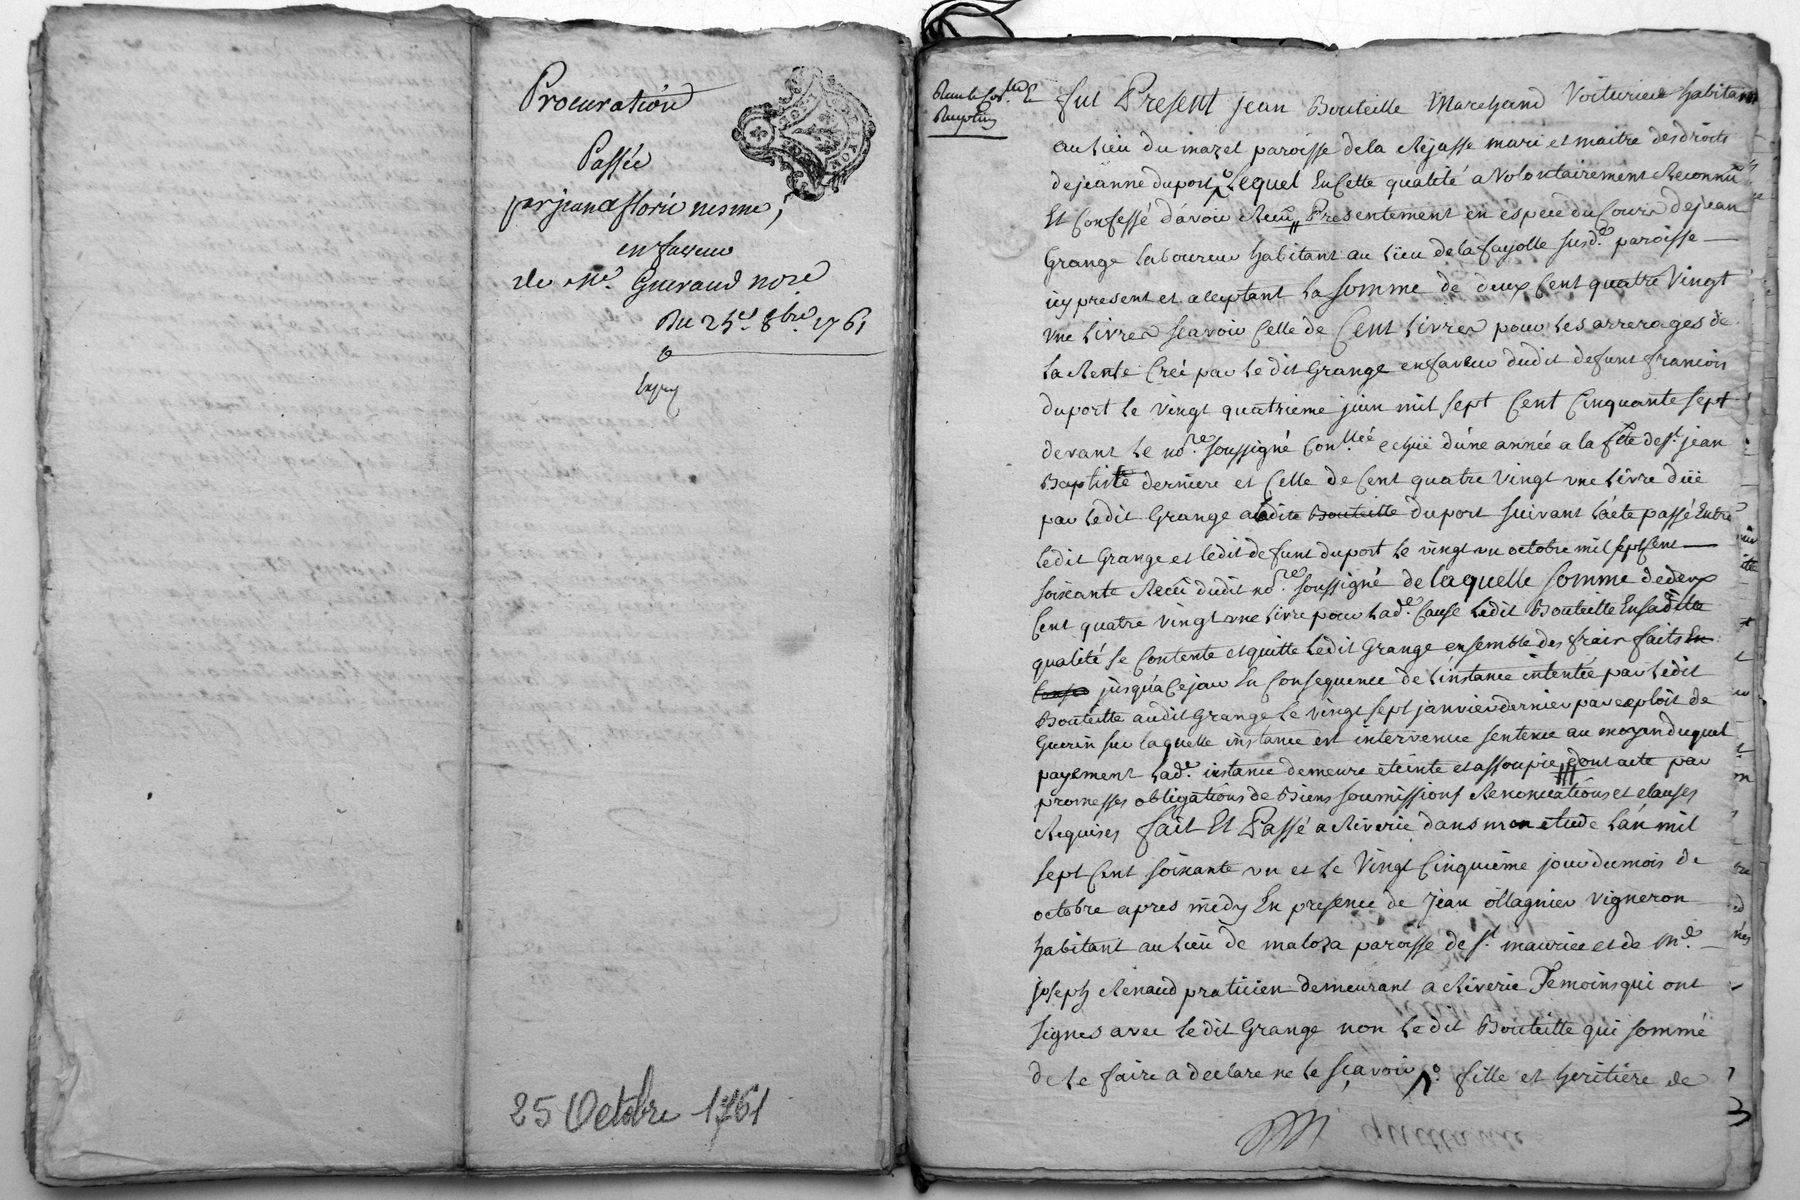 Procuration
Passée
par jean & florie nesme,
en faveur
de Me. Gueraud nore
Du 25e. 8bre. 1761
25 Octobre 1761
fut Present jean Bouteille Marchand Voiturier habitant
au lieu du mazel paroisse de la Rejasse mari et maitre des droits
de jeanne duport Lequel En Cette qualité a volontairement Reconnu
Et Confessé d'avoir Recu Presentement en espece du Cours de jean
Grange laboureur habitant au lieu de la fayolle susd.e paroisse
icy present et aceptant La somme de deux Cent quatre Vingt
une Livres scavoir Celle de Cent Livres pour les arrerages de
la Rente Creé par le dit Grange en faveur dudit defunt francois
duport le vingt quatrieme juin mil sept Cent Cinquante sept
devant le nore. soussigné Conllée echüe d'une année a la fête de st. jean
Baptiste derniere et Celle de Cent quatre vingt une livre düe
par ledit Grange audit Bouteille duport suivant l'acte passé Entre
ledit Grange et ledit defunt duport le vingt un octobre mil sept Cent
soixante Recu dudit nore. soussigné de laquelle somme de deux
Cent quatre vingt une livre pour lade. Cause ledit Bouteille En sadite
qualité se Contente et quitte ledit Grange ensemble des frais faits En
jusqu'a Ce jour En Consequence de l'instance intentée par ledit
Bouteille audit Grange le vingt sept janvier dernier par exploit de
Guerin sur laquelle instance est intervenue sentence au moyen duquel
payement lade. instance demeure eteinte et assoupie dont acte par
promesses obligations de Biens soumissions Renonciations et clauses
Requises fait Et Passé a Riverie dans mon etude l'an mil
sept Cent soixante un et le Vingt Cinquieme jour du mois de
octobre apres midy En presence de jean ollagnier vigneron
habitant au lieu de maloza paroisse de st. maurice et de Me.
joseph Renaud praticien demeurant a Riverie Temoins qui ont
signes avec ledit Grange non ledit Bouteille qui sommé
de le faire a declare ne le sçavoir fille et heritiere de